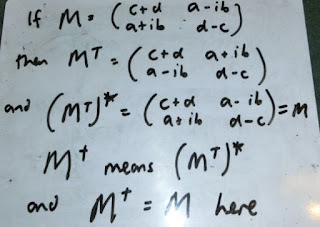 If M = (c+d a-ib
a+ib d-c)
then Mᵀ = (c+d a+ib
a-ib d-c)
and (Mᵀ)* = (c+d a-ib
a+ib d-c) = M
M† means (Mᵀ)*
and M† = M here